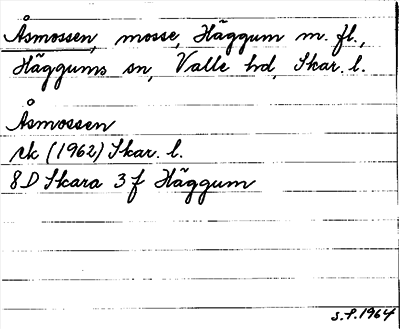 Åsmossen, mosse, Häggum m. fl.,
Häggums sn, Valle hd, Skar. l.
Åsmossen
rk (1962) Skar. l.
8D Skara 3f Häggum
S.P. 1964